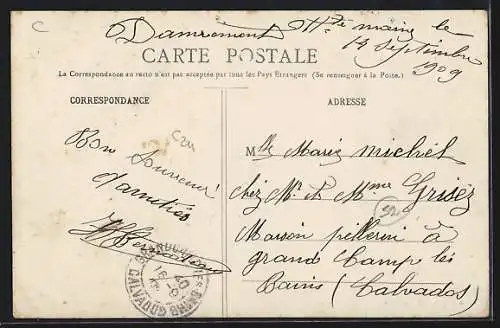 C
Damremont Hte marne le
14 Septembre
1909
CARTE POSTALE
La Correspondance au recto n'est pas acceptée par tous les Pays Étrangers (Se renseigner à la Poste.)
CORRESPONDANCE
ADRESSE
Bon Souvenir
d'amitiés
Mlle Marie Michel
chez Mr & Mme Grisez
Maison pellerin à
grand Camp les
Bains (Calvados)
CALVADOS